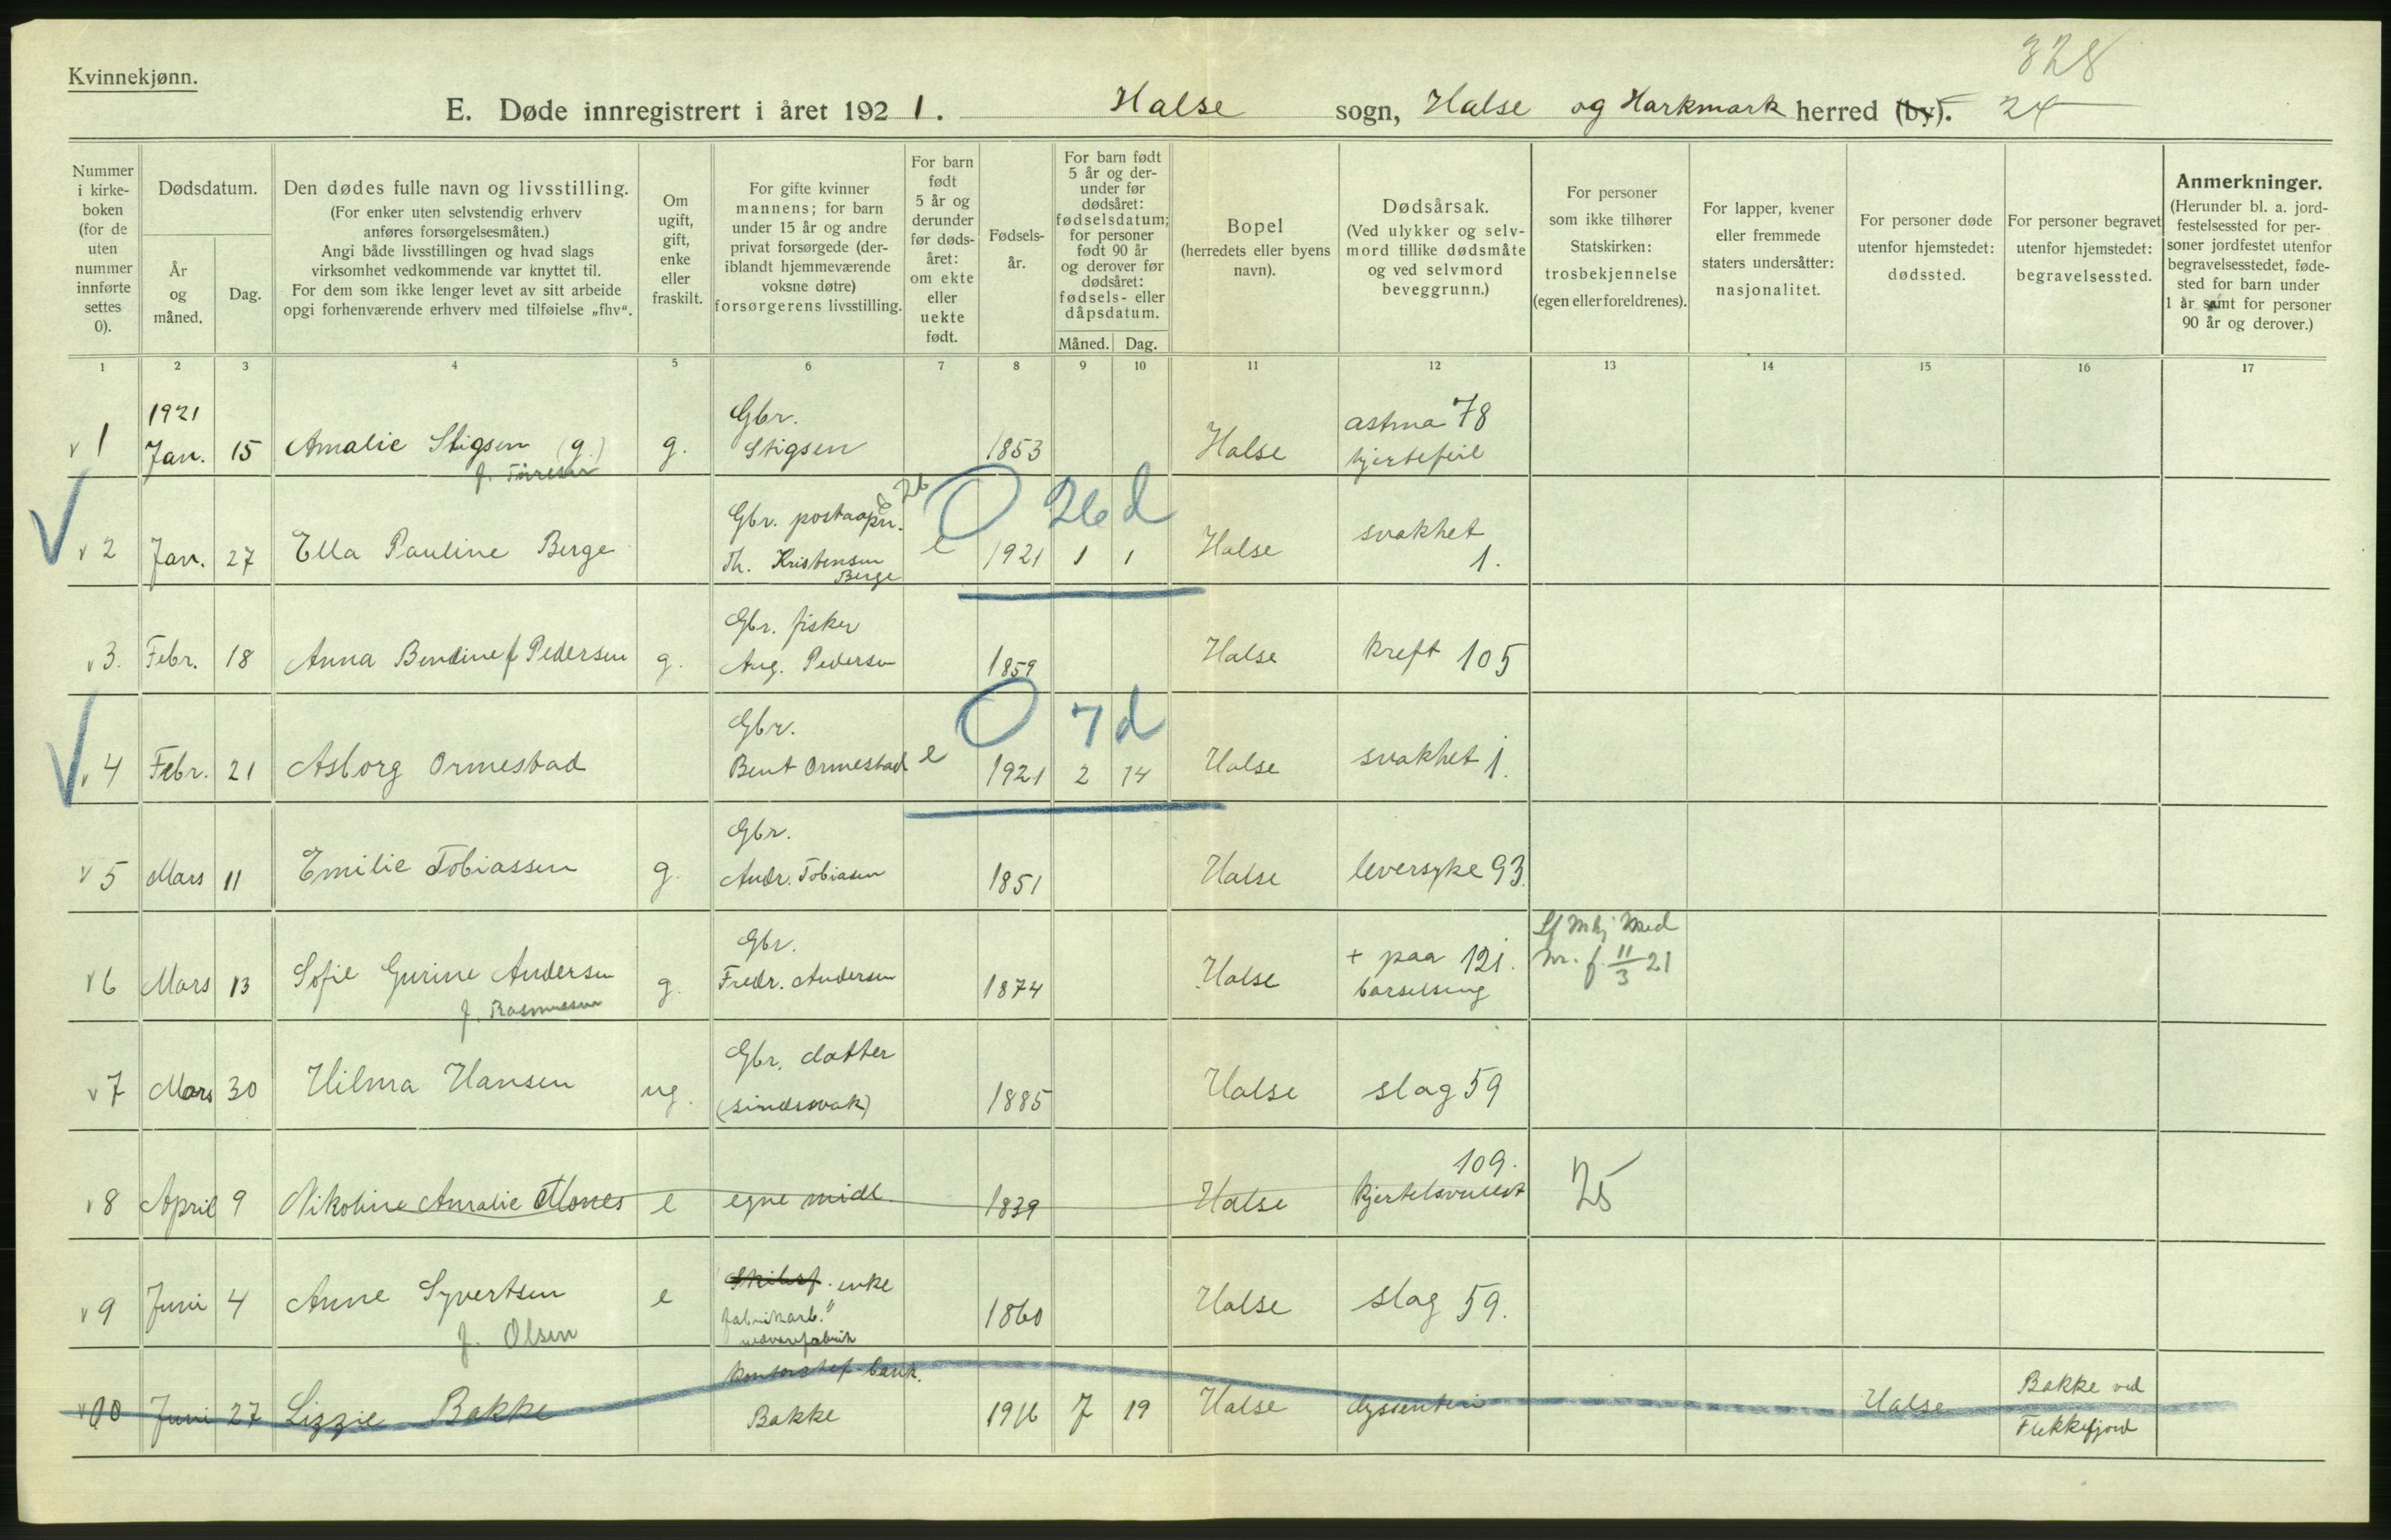 Kvinnekjønn.
328
E. Døde innregistrert i året 1921. Halse sogn, Halse og Harkmark herred (by). 24
Nummer i kirkeboken (for de uten nummer innførte settes 0).
Dødsdatum.
År og måned.
Dag.
Den dødes fulle navn og livsstilling.
(For enker uten selvstendig erhverv anføres forsørgelsesmåten.)
Angi både livsstillingen og hvad slags virksomhet vedkommende var knyttet til.
For dem som ikke lenger levet av sitt arbeide opgi forhenværende erhverv med tilføielse „fhv“.
Om ugift, gift, enke eller fraskilt.
For gifte kvinner mannens; for barn under 15 år og andre privat forsørgede (deriblandt hjemmeværende voksne døtre) forsørgerens livsstilling.
For barn født 5 år og derunder før dødsåret: om ekte eller uekte født.
Fødselsår.
For barn født 5 år og derunder før dødsåret: fødselsdatum; for personer født 90 år og derover før dødsåret: fødsels- eller dåpsdatum.
Måned.
Dag.
Bopel
(herredets eller byens navn).
Dødsårsak.
(Ved ulykker og selvmord tillike dødsmåte og ved selvmord beveggrunn.)
For personer som ikke tilhører Statskirken: trosbekjennelse (egen eller foreldrenes).
For lapper, kvener eller fremmede staters undersåtter: nasjonalitet.
For personer døde utenfor hjemstedet: dødssted.
For personer begravet utenfor hjemstedet: begravelsessted.
Anmerkninger.
(Herunder bl. a. jordfestelsessted for personer jordfestet utenfor begravelsesstedet, fødested for barn under 1 år samt for personer 90 år og derover.)
1 2 3 4 5 6 7 8 9 10 11 12 13 14 15 16 17
1921
v 1 Jan. 15 Amalie Stigsen (g.) g. Gbr. Stigsen 1853 Halse astma 78 hjertefeil
v 2 Jan. 27 Ella Pauline Berge Gbr. postaapn. Th. Kristensen Berge e 0 26 d 1921 1 1 Halse svakhet 1.
v 3. Febr. 18 Anna Bendine f Pedersen g. Gbr. fisker Aug. Pedersen 1859 Halse kreft 105
v 4 Febr. 21 Asborg Ormestad Gbr. Bent Ormestad e 0 7 d 1921 2 14 Halse svakhet 1.
v 5 Mars 11 Emilie Tobiassen g. Gbr. Andr. Tobiasen 1851 Halse leversyke 93.
v 6 Mars 13 Sofie Gurine Andersen f. Rasmussen g. Gbr. Fredr. Andersen 1874 Halse + paa 121. barselseng nr. f. 11/3 21
v 7 Mars 30 Hilma Hansen ug. Gbr. datter (sindssvak) 1885 Halse slag 59
v 8 April 9 Nikoline Amalie Mones e egne midl. 1839 Halse 109. kjertelsvulst 25
v 9 Juni 4 Anne Syvertsen f. Olsen e Skibsf. enke fabrikarb. 1860 Halse slag 59.
v 10 Juni 27 Lizzie Bakke kontorchef bank. Bakke 1916 7 19 Halse dyssenteri Halse Bakke ved Flekkefjord